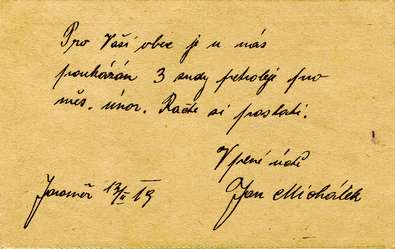 Pro Vaší obec je u nás
poukázán 3 sudy petroleje pro
měs. únor. Račte si poslati.
V plné úctě
Jaroměř 13/II 19 Jan Michálek